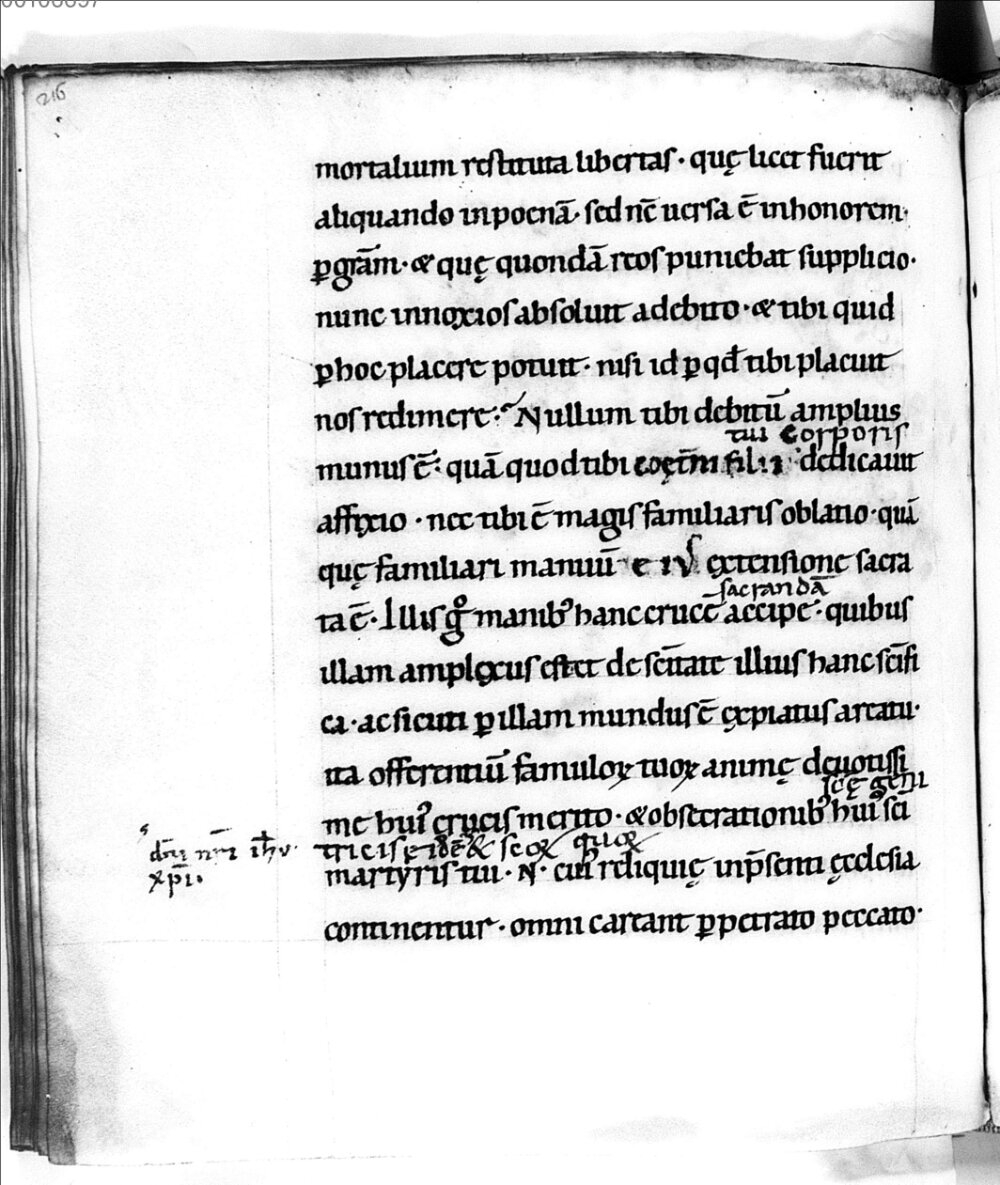 216
mortalium restituta libertas· quę licet fuerit
aliquando inpoenā· sed nc̄ uersa ē inhonorem·
ꝑ gr̄am· & quę quondā reos puniebat supplicio·
nunc innoxios absoluit adebito· & tibi quid
ꝑ hoc placere potuit· nisi id ꝑ qđ tibi placuit
nos redimere· Nullum tibi debitū amplius
tui corporis
munus ē· quā quod tibi dedicauit
affixio· nec tibi ē magis familiaris oblatio· quā
quę familiari manuū extensione sacra
sacrandā
ta ē· Illis g̊ manibꝰ hanc crucē accipe· quibus
illam amplexus es· et de sc̄itate illius hanc sc̄ifi
ca· ac sicuti ꝑ illam mundus ē expiatus areatu·
ita offerentiū famuloꝝ tuoꝝ animę deuotissi
scę geni
me huiꝰ crucis merito· & obsecrationibꝰ huiꝰ sc̄i
dn̄i nr̄i ih̄u·
xp̄i·
tricis & scoꝝ quoꝝ
martyris tui· N· cuiꝰ reliquię inp̄senti ęcclesia
continentur· omni careant ꝑpetrato peccato·